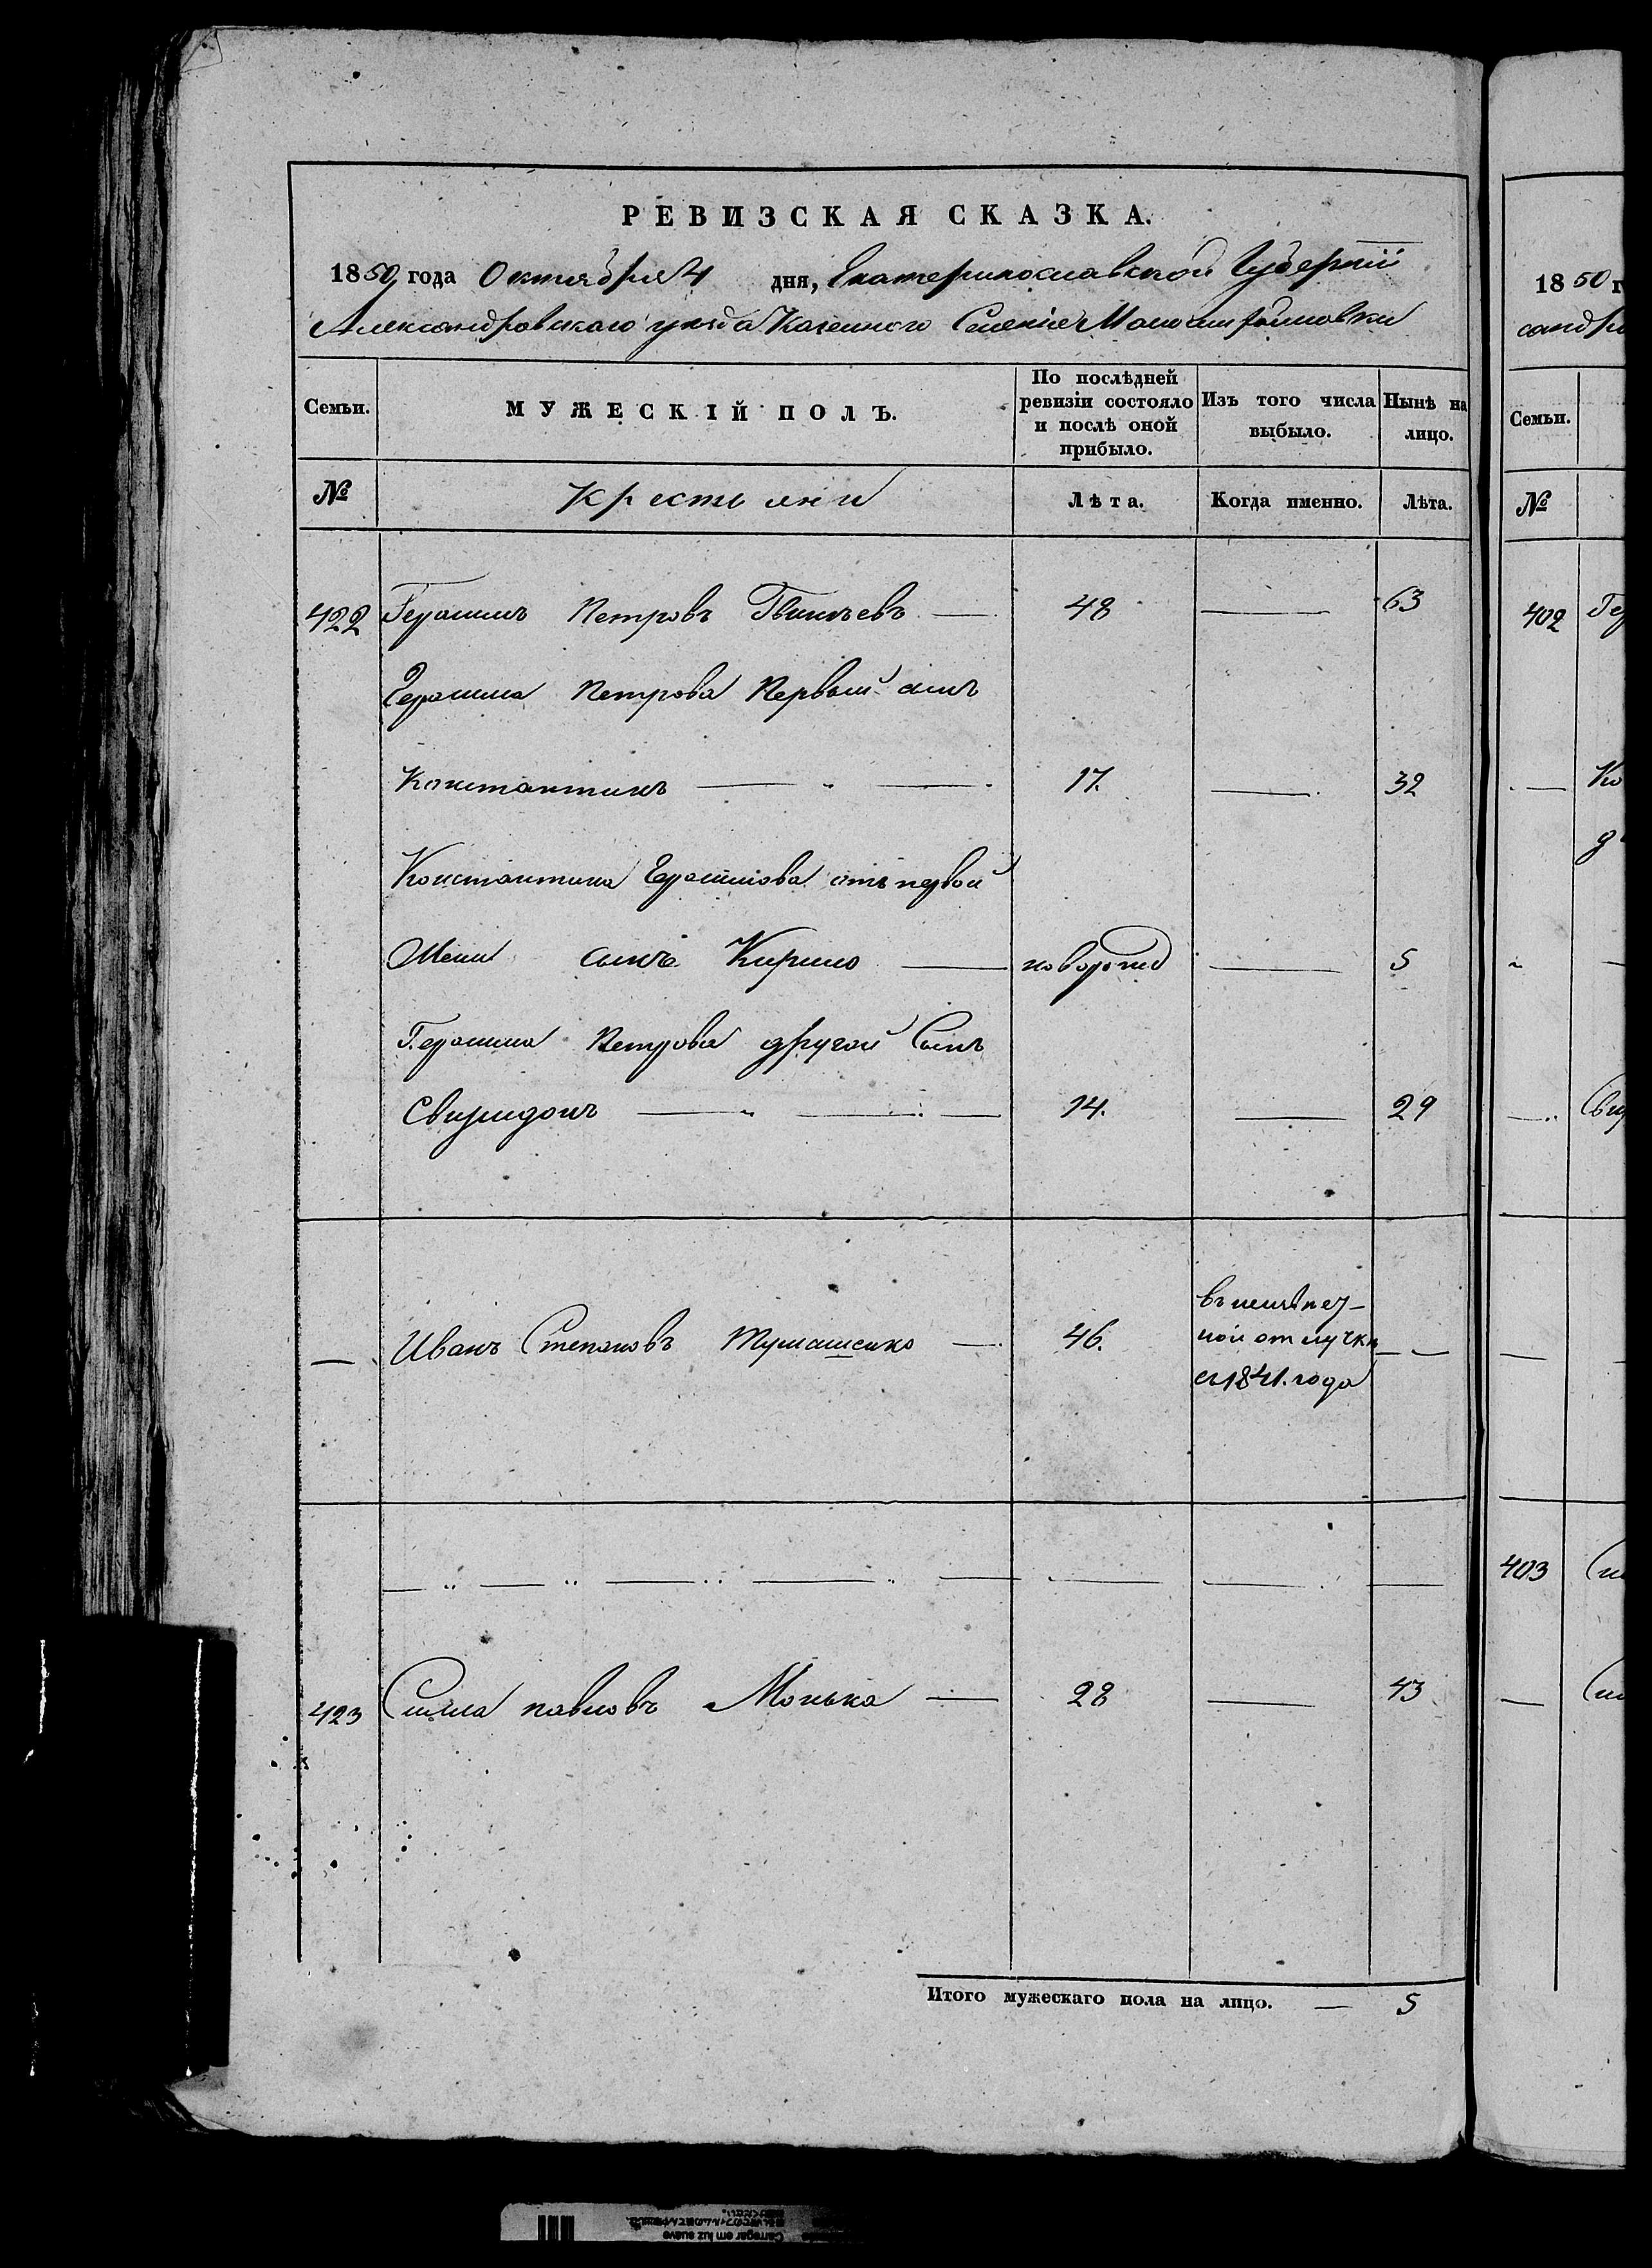 РЕВИЗСКАЯ СКАЗКА.
1850 года Октября 4 дня, Екатеринославской Губернiи
Александровскаго уезда Казенного Селенiе
Семьи.
МУЖЕСКІЙ ПОЛЪ.
По послѣдней ревизіи состояло и послѣ оной прибыло.
Изъ того числа выбыло.
Нынѣ на лицо.
№ Крестьяни Лѣта. Когда именно. Лѣта.
422 Герасимъ Петровъ 48 63
Герасима Петрова Первый сынъ
Константинъ 17. 32
Константина Ерасимова отъ первой
Жени сынъ Кирило новорожд 5
Герасима Петрова другой Сынъ
Свиридонъ 14. 29
Иванъ Степановъ 46.
въ
ной отлучки
съ 1841. года
423 Сила павловъ Монька 28 43
Итого мужескаго пола на лицо. — 5
1850 г
сандро
Семьи.
№
402 Гер
Ко
Сви
403